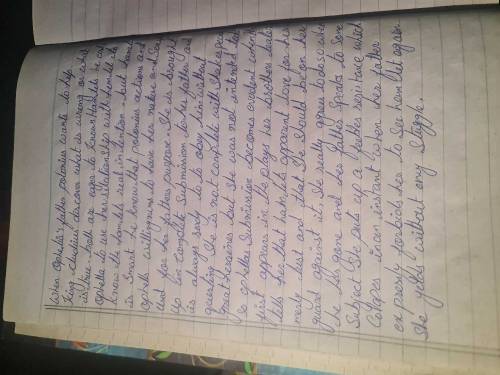 When Ophelia's father polonius wants to help
King Claudius discover what is wrong
is true. both are eager to known Hamlet he ask
ophelia to use her relitionship with hamlet to
know the hamlet's real intention. but hamlet
is smart he know that polonius actions and
ophelia willingness to have her nature and
that for her fathers purpose. She is brought
up in complete submission to her father and
is always ready to do obey him without
question. She is not complete with Shakespeare
great heroines but she was not intented to
so ophelias submission becomes evident when
first appears in the plays her brothers
tells her that hamlets apparent love for her
merely lust and that she should be on her
guard against it. She really agree but as soon as
he has gone and her father speaks to
subject she puts up a father resistance which
colapes in an instant when her father
expresly forbids her to see hamlet again
she yeilds without any Stuggle.